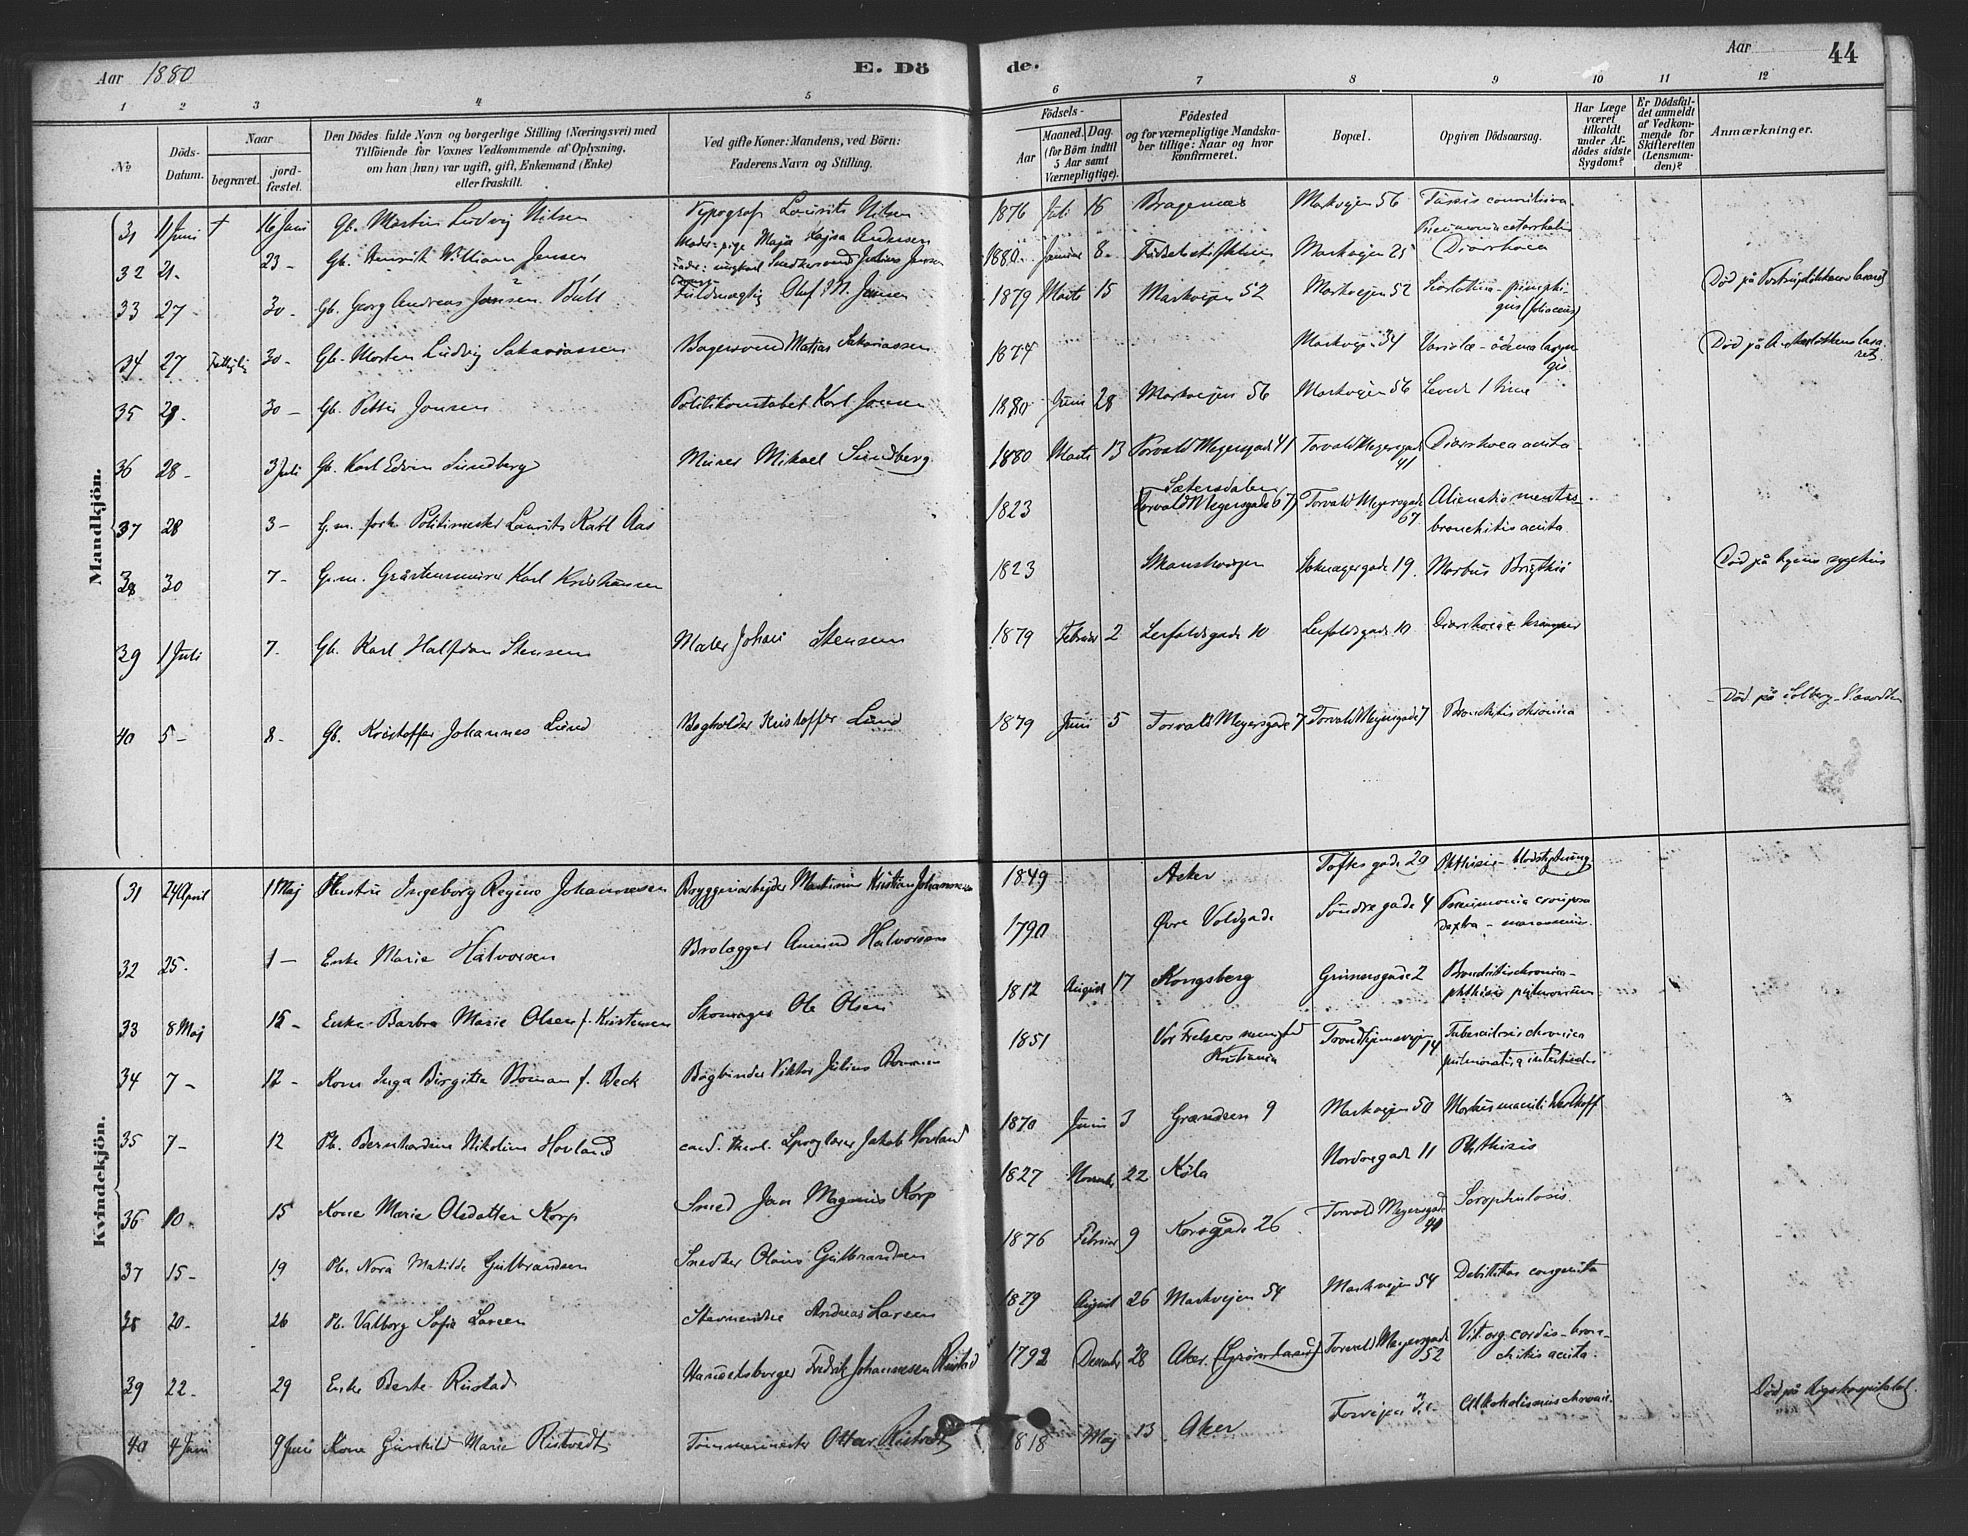 Aar 1880
E. Dö
de.
Aar
44
1 2 3 4 5 6 7 8 9 10 11 12
No
Döds-Datum.
Naar
begravet.
jord-fæstet.
Den Dödes fulde Navn og borgerlige Stilling (Næringsvei) med
Tilföiende for Voxnes Vedkommende af Oplysning,
om han (hun) var ugift, gift, Enkemand (Enke)
eller fraskilt.
Ved gifte Koner: Mandens, ved Börn:
Faderens Navn og Stilling.
Födsels-
Aar
Maaned. Dag.
(for Börn indtil
5 Aar samt
Værnepligtige).
Födested
og for værnepligtige Mandska-
ber tillige: Naar og hvor
konfirmeret.
Bopæl.
Opgiven Dödsaarsag.
Har Læge
været
tilkaldt
under Af-
dödes sidste
Sygdom?
Er Dödsfal-
det anmeldt
af Vedkom-
mende for
Skifteretten
(Lensman-
den)?
Anmærkninger.
Mandkjön.
31 11 Juni † 16 Juni Gb. Martin Ludvig Nilsen Typograf Laurits Nilsen 1876 Juli 16 Bragernes Markvejen 56 Tussis convulsiva
Pneumonia catarrhalis
32 21- 23- Gb. Henrik William Jensen Moder: pige Maja Kajsa Andersen
Fader: ungkarl Snedkersvend Julius Jensen 1880 Januar 8 Fødselsstiftelsen Markvejen 25 Diarrhoea
33 27 30- Gb. Georg Andreas Jansen Bull Fuldmægtig Oluf M. Jansen 1879 Marts 15 Markvejen 52 Markvejen 52 Scarlatina - pemphi
gus (foliaceus)
34 27 30- Gb. Morten Ludvig Sakariassen Bagersvend Matias Sakariassen 1874 Markvejen 34 Variolæ - ødema laryn
gis
35 28- 30- Gb. Petter Jonsen Politikonstabel Karl Jonsen 1880 Juni 28 Markvejen 56 Markvejen 56 Levede 1 time
36 28- 3 Juli Gb. Karl Edvin Sundberg Murer Mikael Sundberg 1880 Marts 13 Torvald Meyersgade 41 Torvald Meyersgade 41 Diarrhoea acuta
37 28 3- G.m. forh. Politimester Laurits Karl Aas 1823 Sætersdalen
(Torvald Meyersgade 67) Torvald Meyersgade 67 Alienatio mentis
bronchitis acuta
38 30 7- G.m. Gråstensmurer Karl Kristiansen 1823 19 Morbus Brigthii Død på sygehus
39 1 Juli 7- Gb. Karl Halfdan Stensen Maler Johan Stensen 1879 Februar 2 Leirfaldsgade 10 Leirfaldsgade 10 Diarrhoea & kramper
40 5- 8- Gb. Kristoffer Johannes Lund Bogholder Kristoffer Lund 1879 Juni 5 Torvald Meyersgade 7 Torvald Meyersgade 7 Bronchitis chronica Død på Solberg
Kvindekjön.
31 24 April 1 Maj Hustru Ingeborg Regine Johannessen Bryggeriarbejder Martinius Kristian Johannessen 1849 Aker Toftes gade 29 Phthisis - blodstyrtning
32 25- 1- Enke Marie Halvorsen Brolægger Amund Halvorsen 1790 Øvre Voldgade Søndre gade 4 Pneumonia crouposa
dextra - marasmus
33 8 Maj 12- Enke Barbra Marie Olsen f. Kristensen Skomager Ole Olsen 1812 August 17 Kongsberg Grünersgade 2 Bronchitis chronica -
phthisis pulmonum
34 7- 12- Kone Inga Birgitte Boman f. Beck Bogbinder Viktor Julius Boman 1851 Vor Frelsers menighed
Kristiania Trondhjemsvejen 14 Tuberculosis chronica
pulmonalis & intestinal
35 7- 12 Pb. Bernhardine Nikoline Hovland cand. theol. Sproglærer Jakob Hovland 1870 Juni 3 Grændsen 9 Markvejen 50 Morbus maculos. Werlhoff
36 10- 15 Kone Marie Olsdatter Korp Smed Jan Magnus Korp 1827 November 22 Køla Nordregade 11 Phthisis
37 15- 19 Pb. Nora Matilde Gulbrandsen Snedker Olaus Gulbrandsen 1876 Februar 9 Korsgade 26 Torvald Meyersgade 40 Scrophulosis
38 20- 26 Pb. Valborg Sofie Larsen Andreas Larsen 1879 August 26 Markvejen 54 Markvejen 54 Debilitas congenita
39 22- 29 Enke Berte Rustad Handelsborger Fredrik Johannesen Rustad 1792 December 28 Aker Torvald Meyersgade 52 Vit. org. cordis - bron-
chitis acuta
40 4 Juni 9 Juni Kone Gunhild Marie Ristvedt Tømmermester Ottar Ristvedt 1818 Maj 13 Aker Alkoholismus chronic. Død på Rigshospitalet.